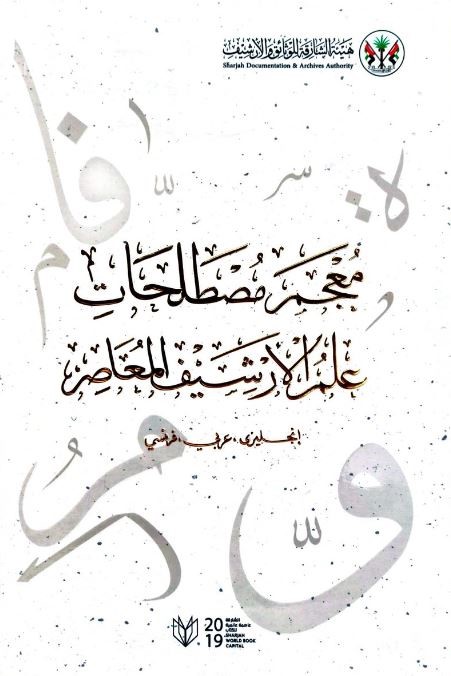 هيئة الشارقة للوثائق والأرشيف
Sharjah Documentation & Archives Authority
مُعْجَم مُصْطَلَحَاتِ
عِلْمُ الأَرْشِيْف المُعَاصِر
إنجليزي، عربي، فرنسي
20
19
الشارقة
عاصمة عالمية
للكتاب
SHARJAH
WORLD BOOK
CAPITAL